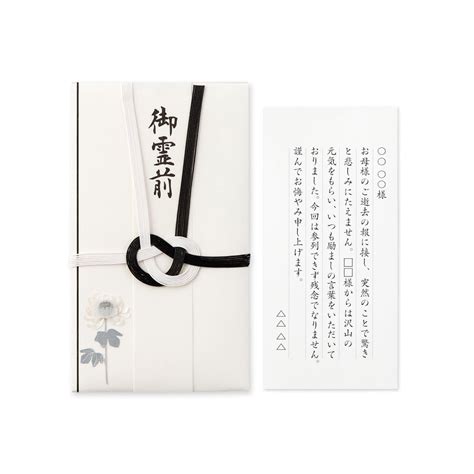 御霊前
○○○○様
お母様のご逝去の報に接し、突然のことで驚き
と悲しみにたえません。□□様からは沢山の
元気をもらい、いつも励ましの言葉をいただいて
おりました。今回は参列できず残念でなりません。
謹んでお悔やみ申し上げます。
△△△△